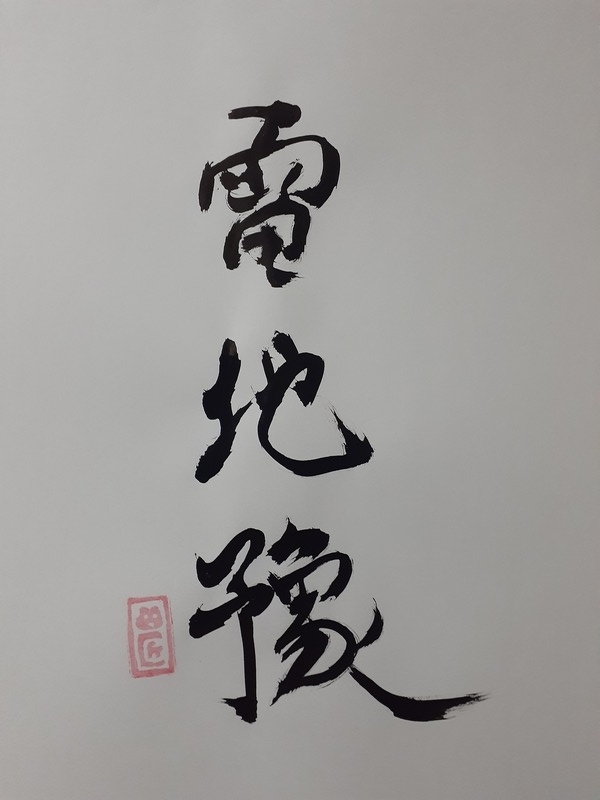 雷地豫